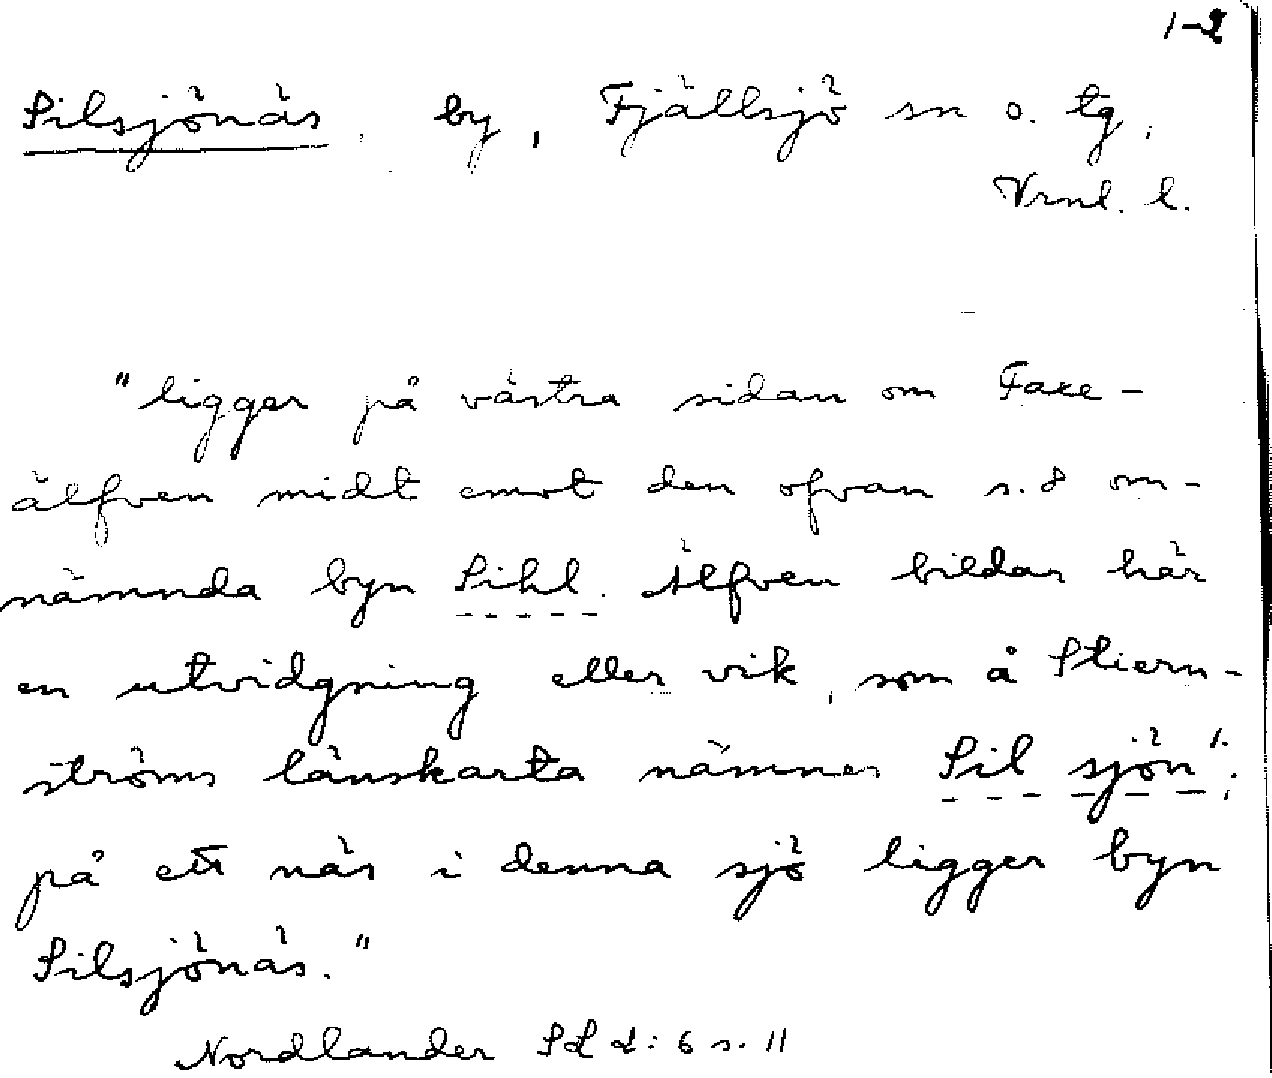 1-2
Silsjönäs, by, Fjällsjö sn o. tg,
Vrnl. l.
"ligger på västra sidan om Faxe-
älfven midt emot den ofvan s. 8 om-
nämnda byn Sihl. Älfven bildar här
en utvidgning eller vik, som å Stiern-
ströms länskarta nämnes Sil sjön";
på ett näs i denna sjö ligger byn
Silsjönäs."
Nordlander SL 2:6 s. 11